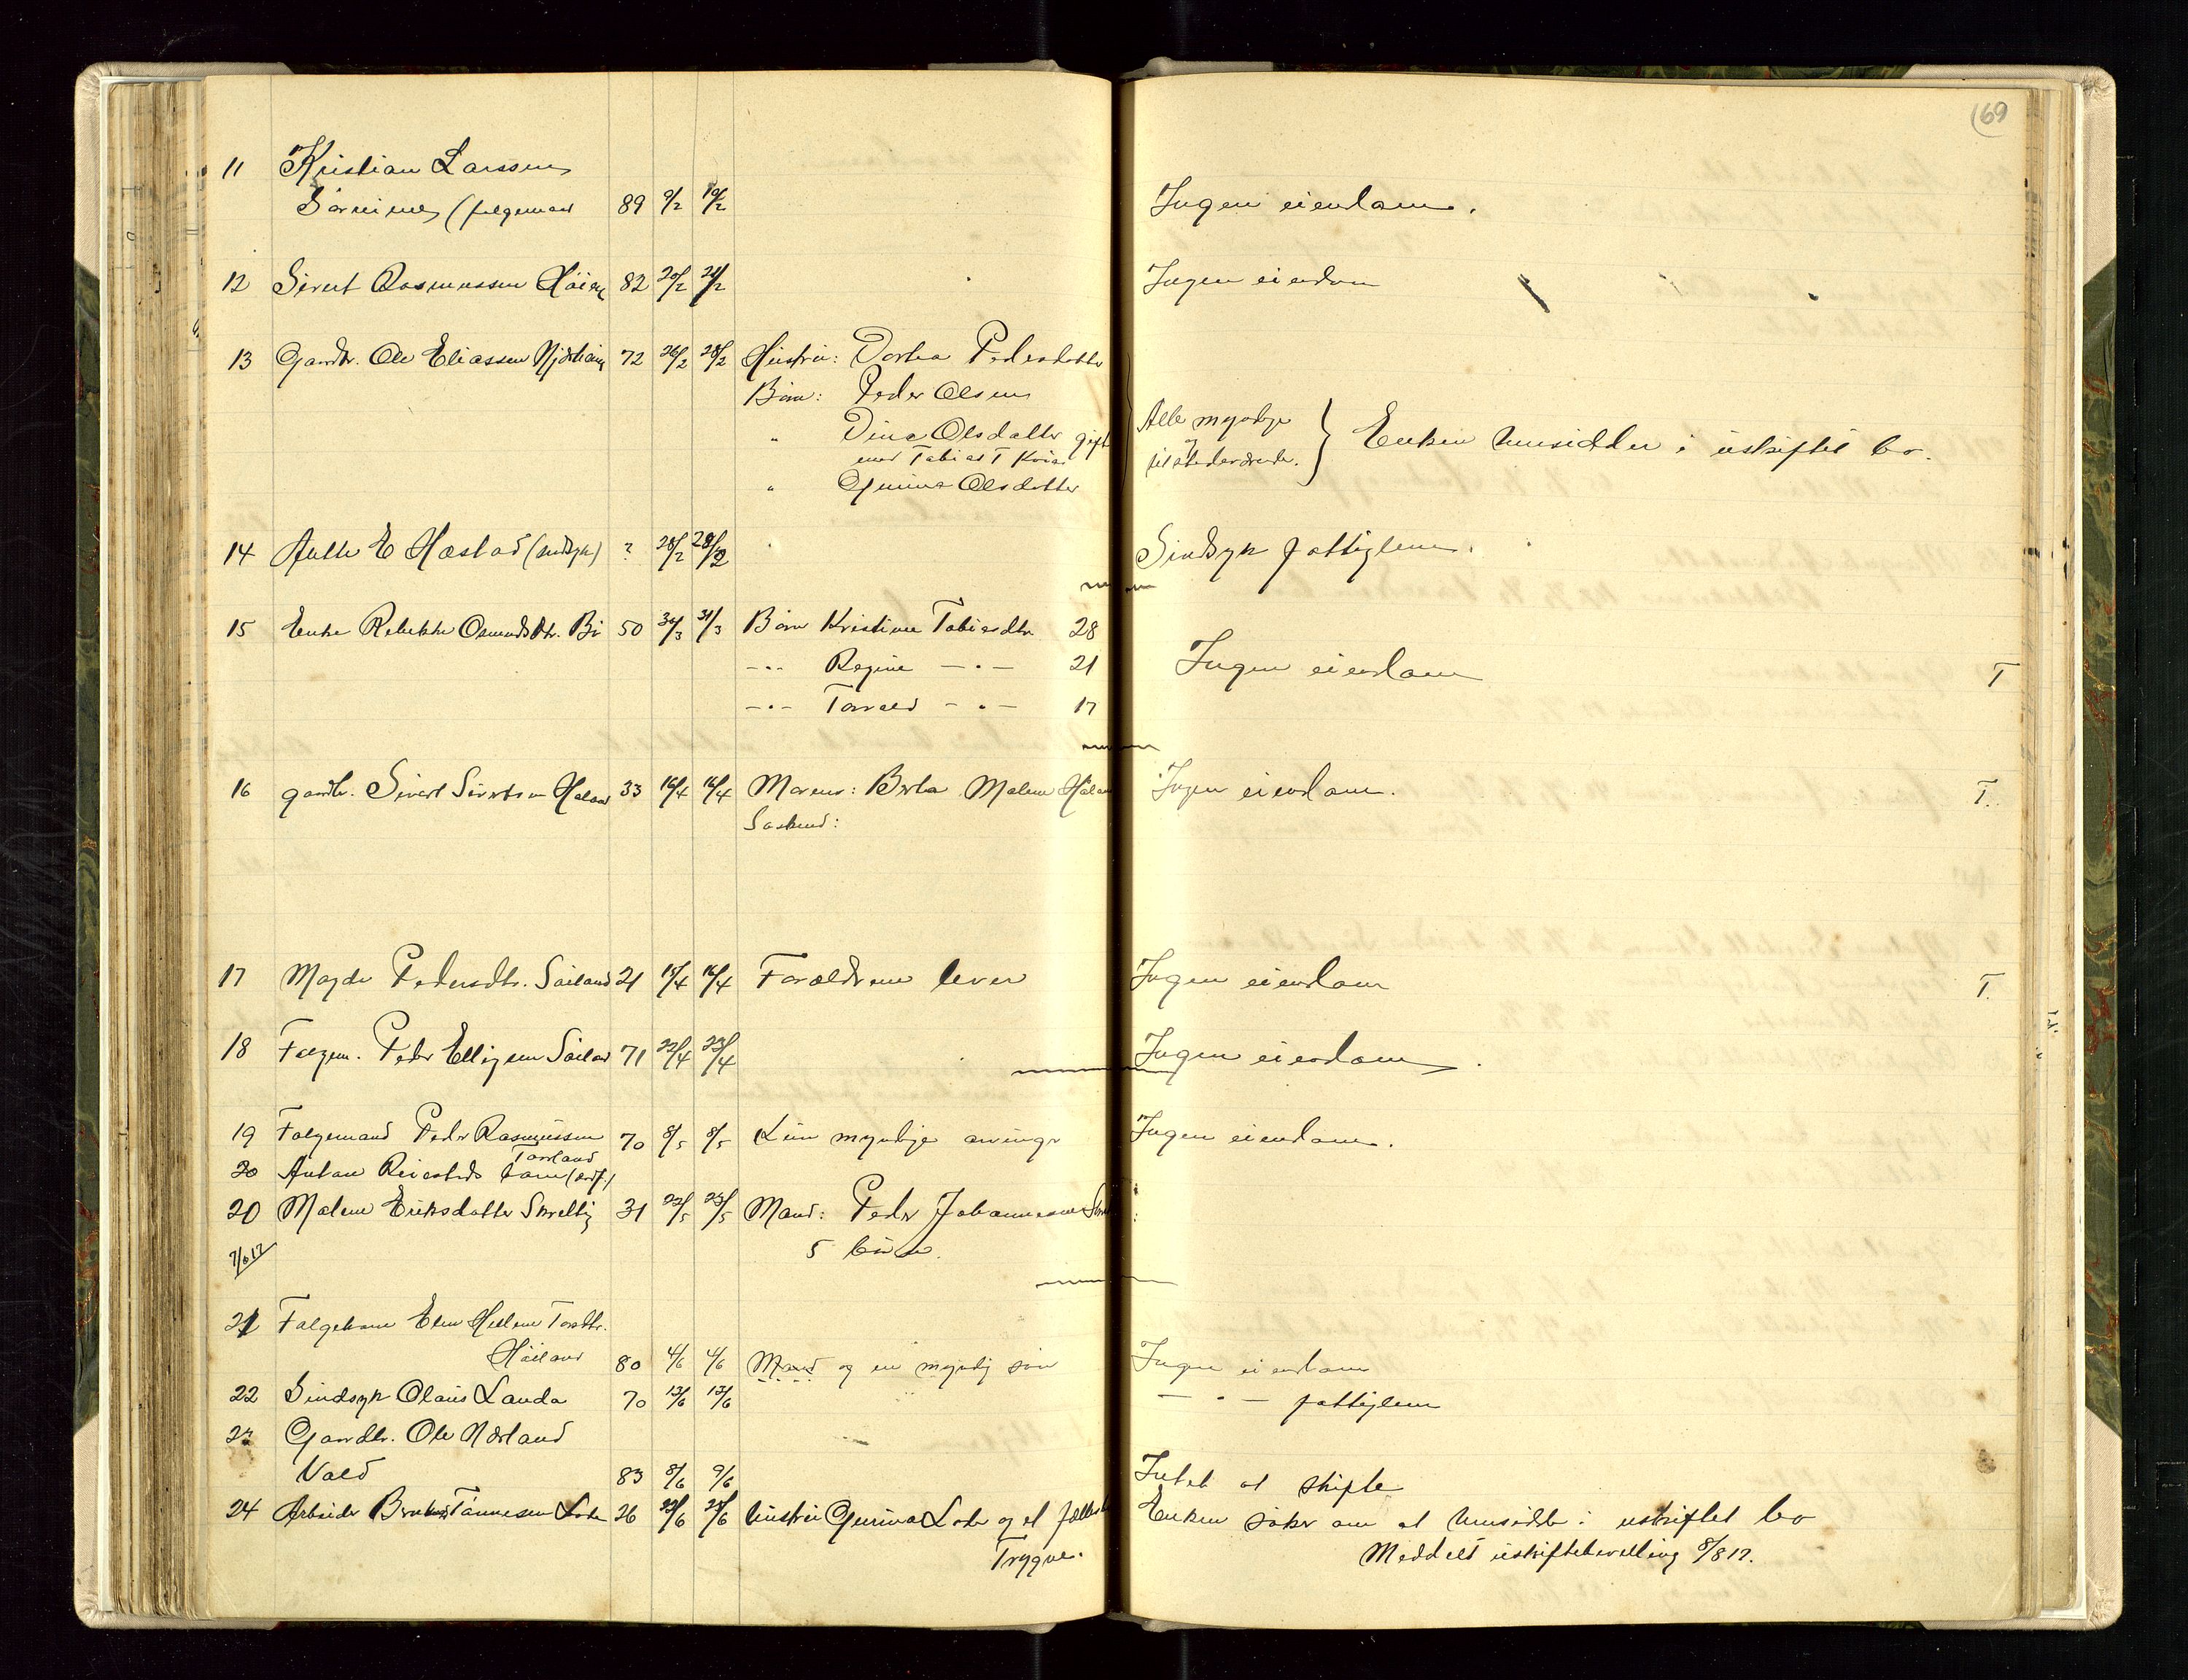 169
11 Kristian Larssen
(følgemand 89 9/2 10/2 Ingen eiendom.
12 Sivert Rasmussen 82 20/2 21/2 Ingen eiendom
13 Gaardbr. Ole Eliassen 72 26/2 28/2 Hustru: Dortea Pedersdatter
Børn: Peder Olsen
" Dina Olsdatter gift Alle myndige
med Tobias T tilstedeværende. } Enken hensidder i uskiftet bo.
" Gurine Olsdatter
14 Anthe E Hæstad (sindsyk) ? 28/2 28/2 Sindsyk fattiglem.
15 Enke Rebekka Osmundsdtr. Bø 50 30/3 31/3 Børn Kristine Tobiasdtr 28
-"- Regine -"- 21 Ingen eiendom T
-"- Torvald -"- 17
16 gaardbr. Sivert Sivertsen Håland 33 16/4 16/4 Moren: Berta Malene Håland Ingen eiendom. T.
Søskend:
17 Magda Pedersdtr. 21 15/4 16/4 Forældrene lever Ingen eiendom T.
18 Følgem. Peder 71 22/4 23/4 Ingen eiendom.
19 Følgemand Peder Rasmussen 70 8/5 8/5 Kun myndige arvinger Ingen eiendom.
20 Anton barn
20 Malene Eriksdatter 31 22/5 23/5 Mand: Peder Johannessen
5 børn.
21 Følgekone Elen Helene
Håland 80 4/6 4/6 Mand og en myndig søn Ingen eiendom
22 Sindsyk Olaus Landa 70 13/6 13/6 - " - fattiglem
23 Gaardbr. Ole Nærland
83 8/6 9/6 Intet at skifte
24 Arbeider Tønnesen 26 22/6 25/6 hustru Gurina og et Enken søker om at hensidde i uskiftet bo
Trygve. Meddelt uskiftebevilling 8/8 17.